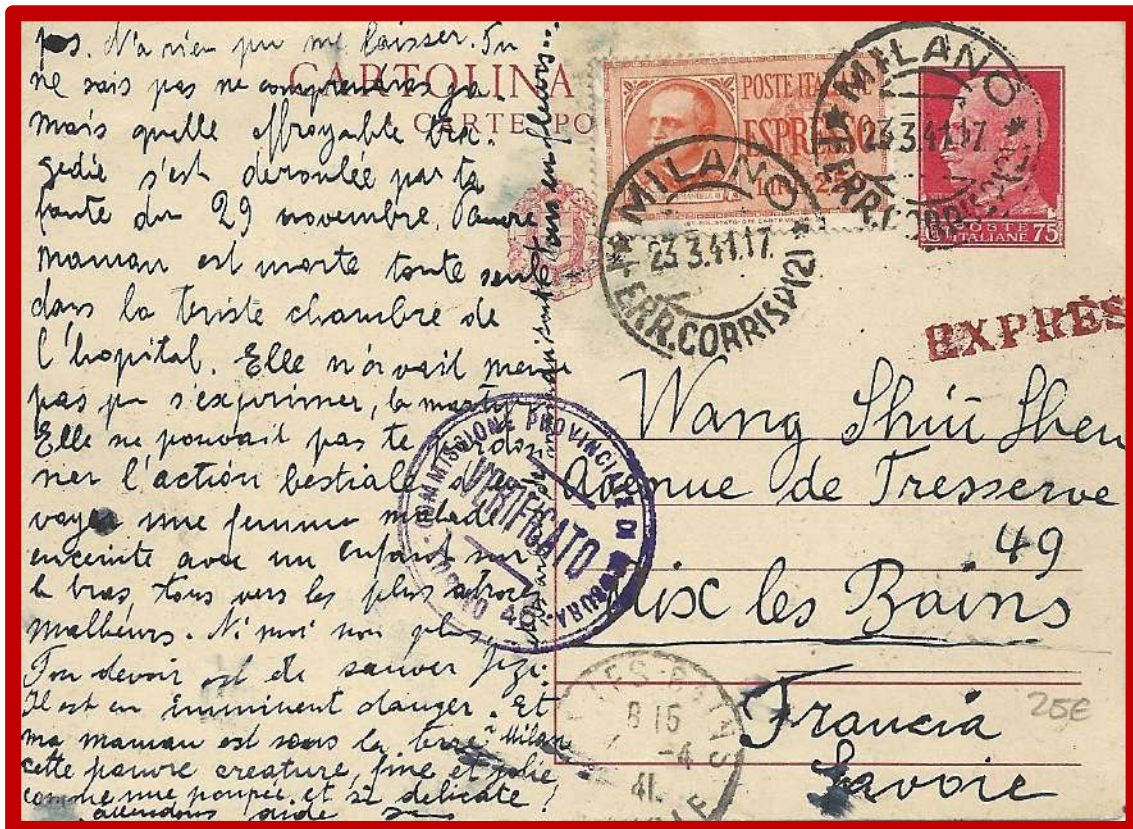 pas. N'a rien pu me laisser. Tu
ne sais pas ne comprendras ja-
mais quelle effroyable tra-
gedie s'est deroulée par ta
faute du 29 novembre. Pauvre
maman est morte toute seule
dans la triste chambre de
l'hopital. Elle n'avait meme
pas pu s'exprimer, la martyre
Elle ne pouvait pas te pardon
ner l'action bestiale
voyer une femme malade
enceinte avec un enfant sur
le bras, tous vers les plus atroces
malheurs. Ni moi non plus
Ton devoir est de sauver
Il est en imminent danger. Et
ma maman est sous la terre à Milan
cette pauvre creature, fine et jolie
comme une poupée et si delicate!
attendons aide
tous en fleurs...
CARTOLINA
CARTE PO
POSTE ITALIANE
ESPRESSO
LIRE 2
* MILANO *
23.3.41.17.
FERR.CORRISP.(2)
* MILANO *
23.3.41.17
FERR.CORRISP.
POSTE
ITALIANE 75
EXPRES
Wang Shui Shen
Avenue de Tresserve
49
Aix les Bains
Francia
Savoie
COMMISSIONE PROVINCIALE DI CENSURA
VERIFICATO
40
8 15
-4
41.
25E